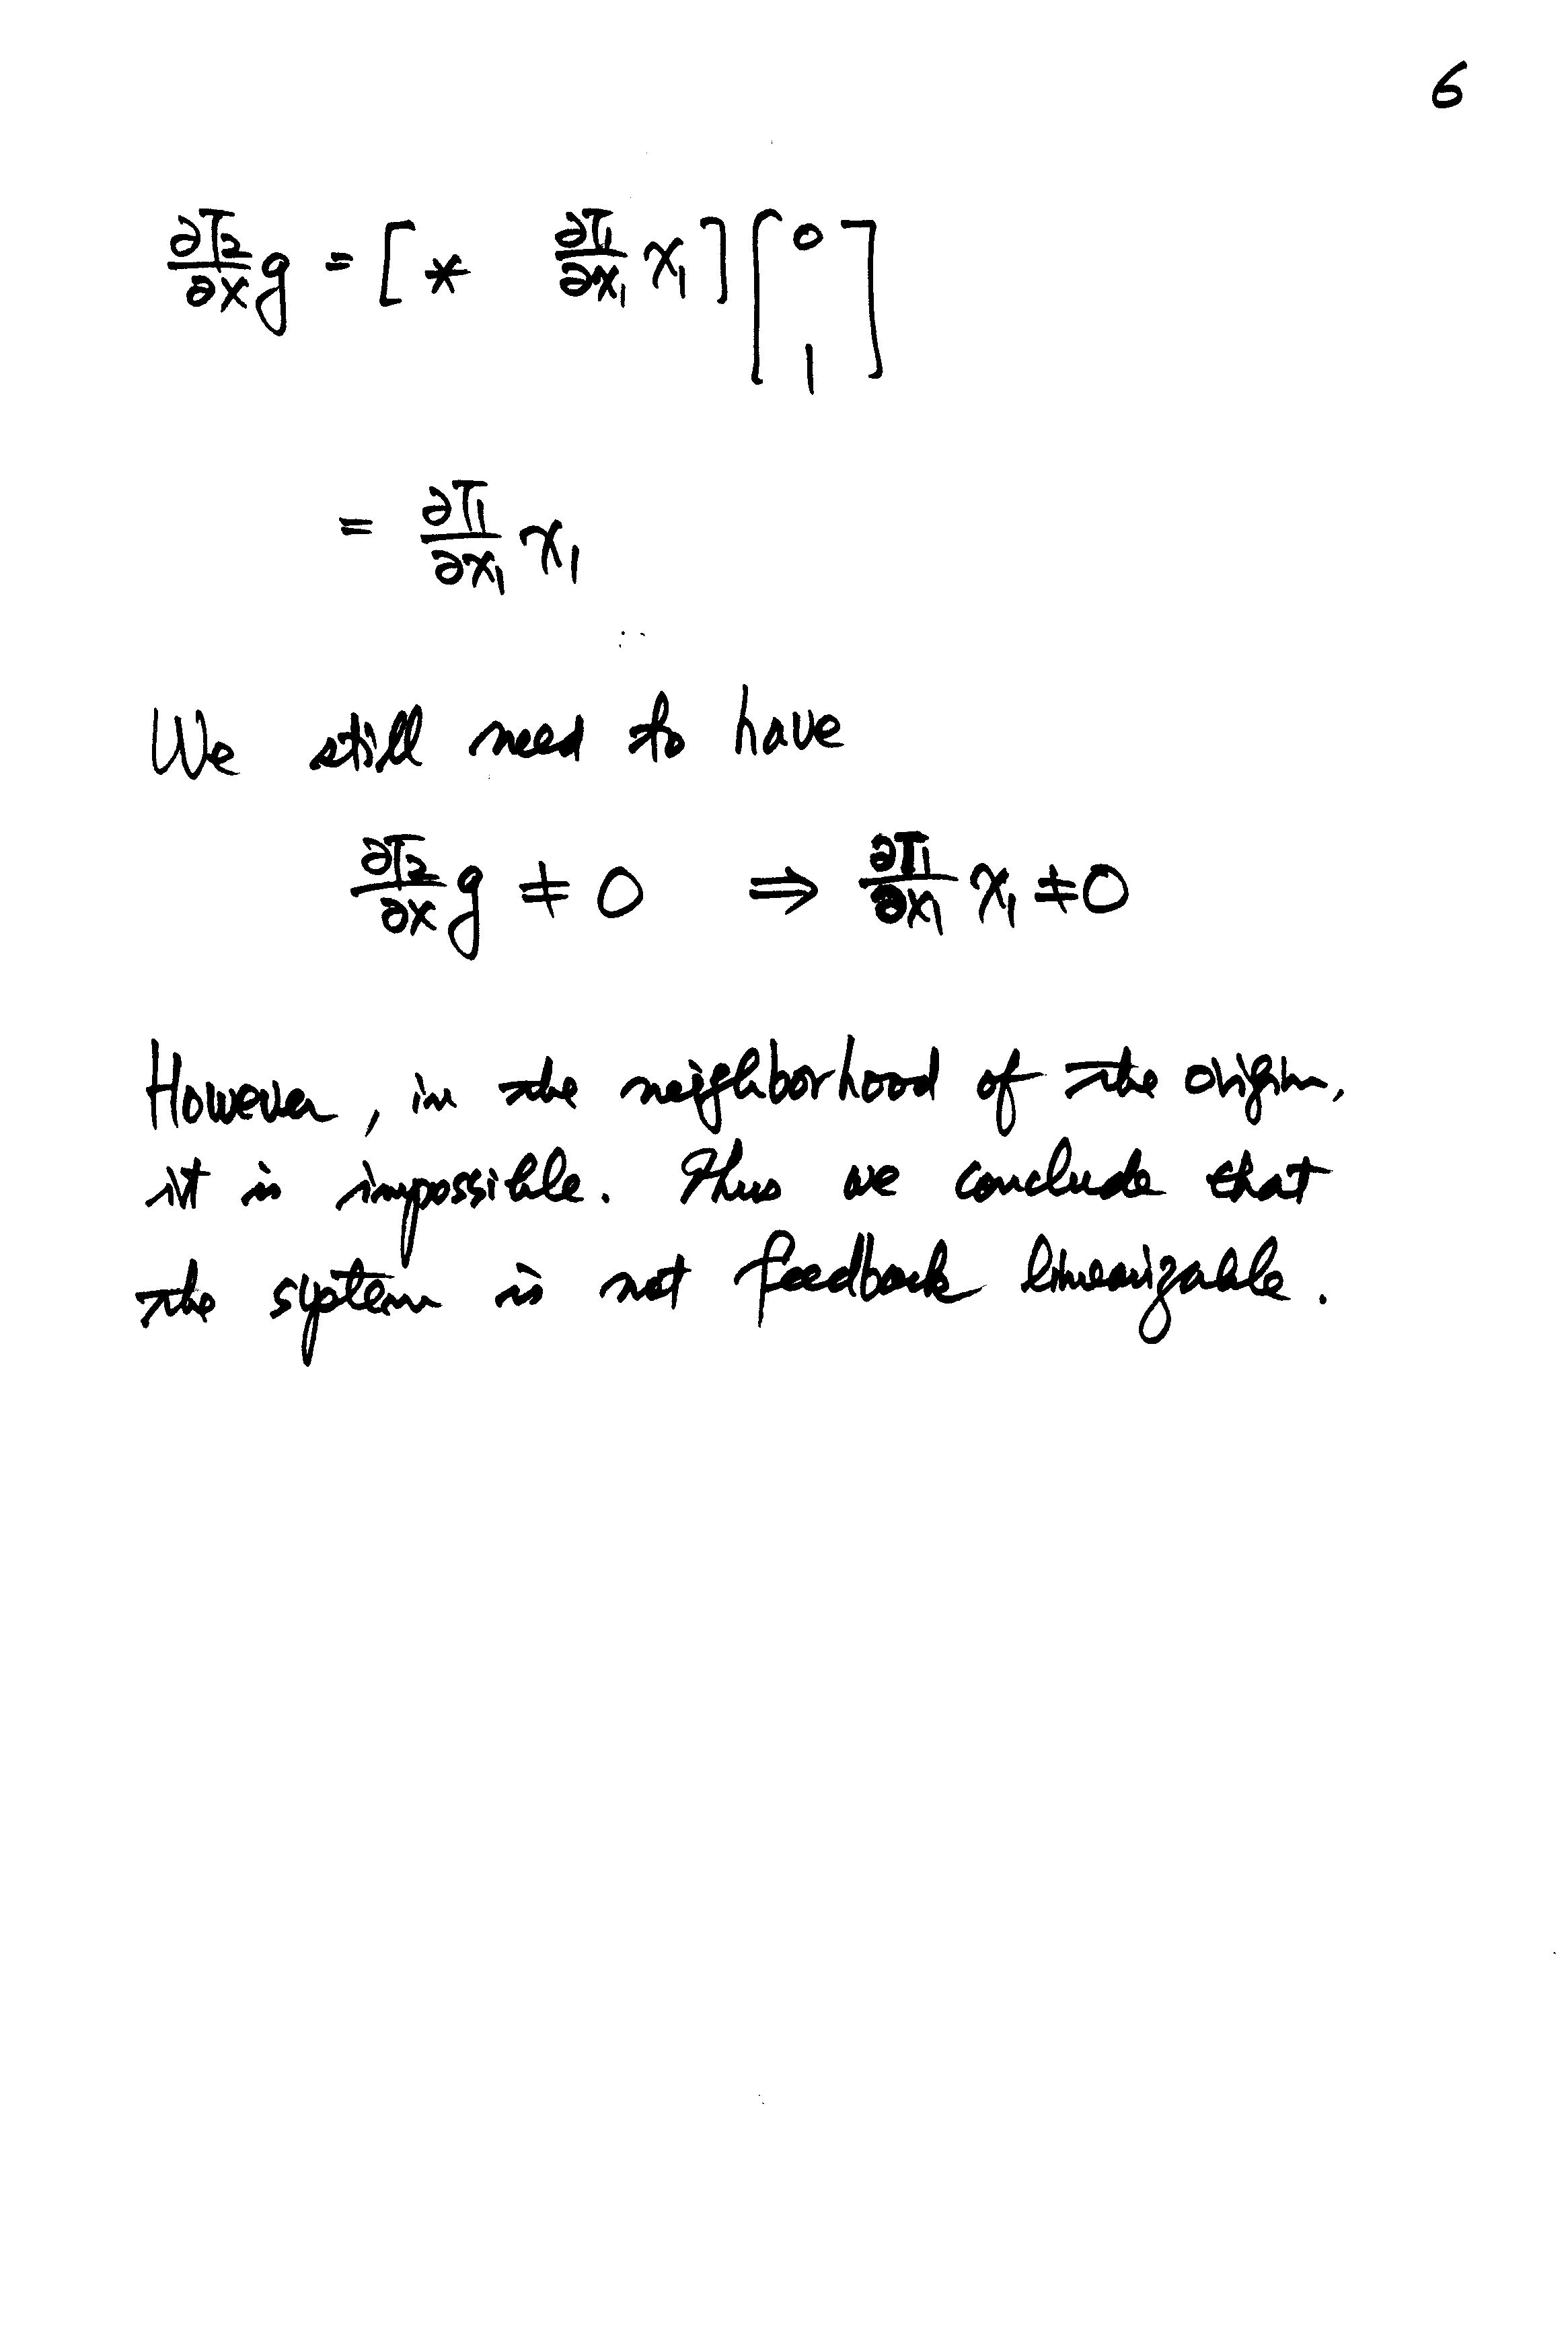 6
∂T₂/∂x g = [ * ∂T₁/∂x₁ x₁ ] [ 0 1 ]
= ∂T₁/∂x₁ x₁
We still need to have
∂T₂/∂x g ≠ 0 ⇒ ∂T₁/∂x₁ x₁ ≠ 0
However, in the neighborhood of the origin,
it is impossible. Thus we conclude that
the system is not feedback linearizable.